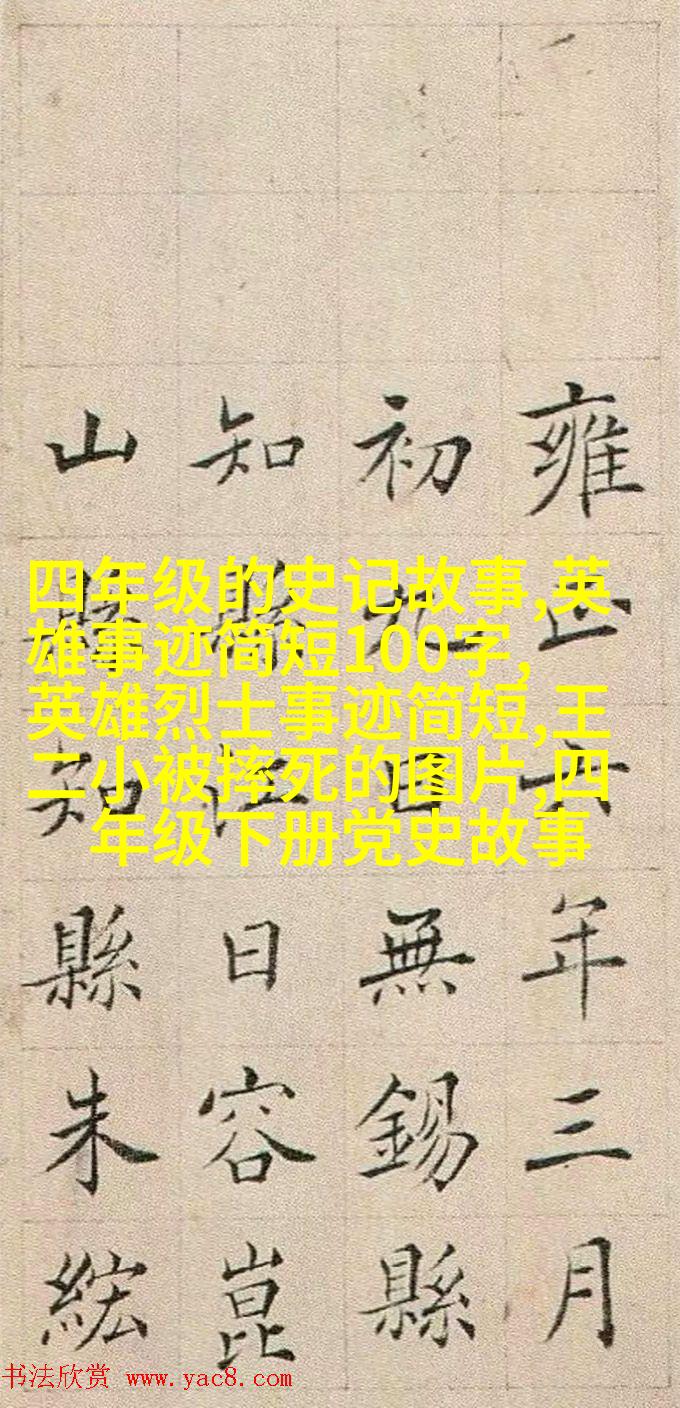 雍正六年三月
初九日無錫縣
知縣江日容崑
山縣知縣朱綋
四年级的史记故事,英
雄事迹简短100字,
英雄烈士事迹简短,王
二小被摔死的图片,四
年级下册党史故事
书法欣赏 www.yac8.com